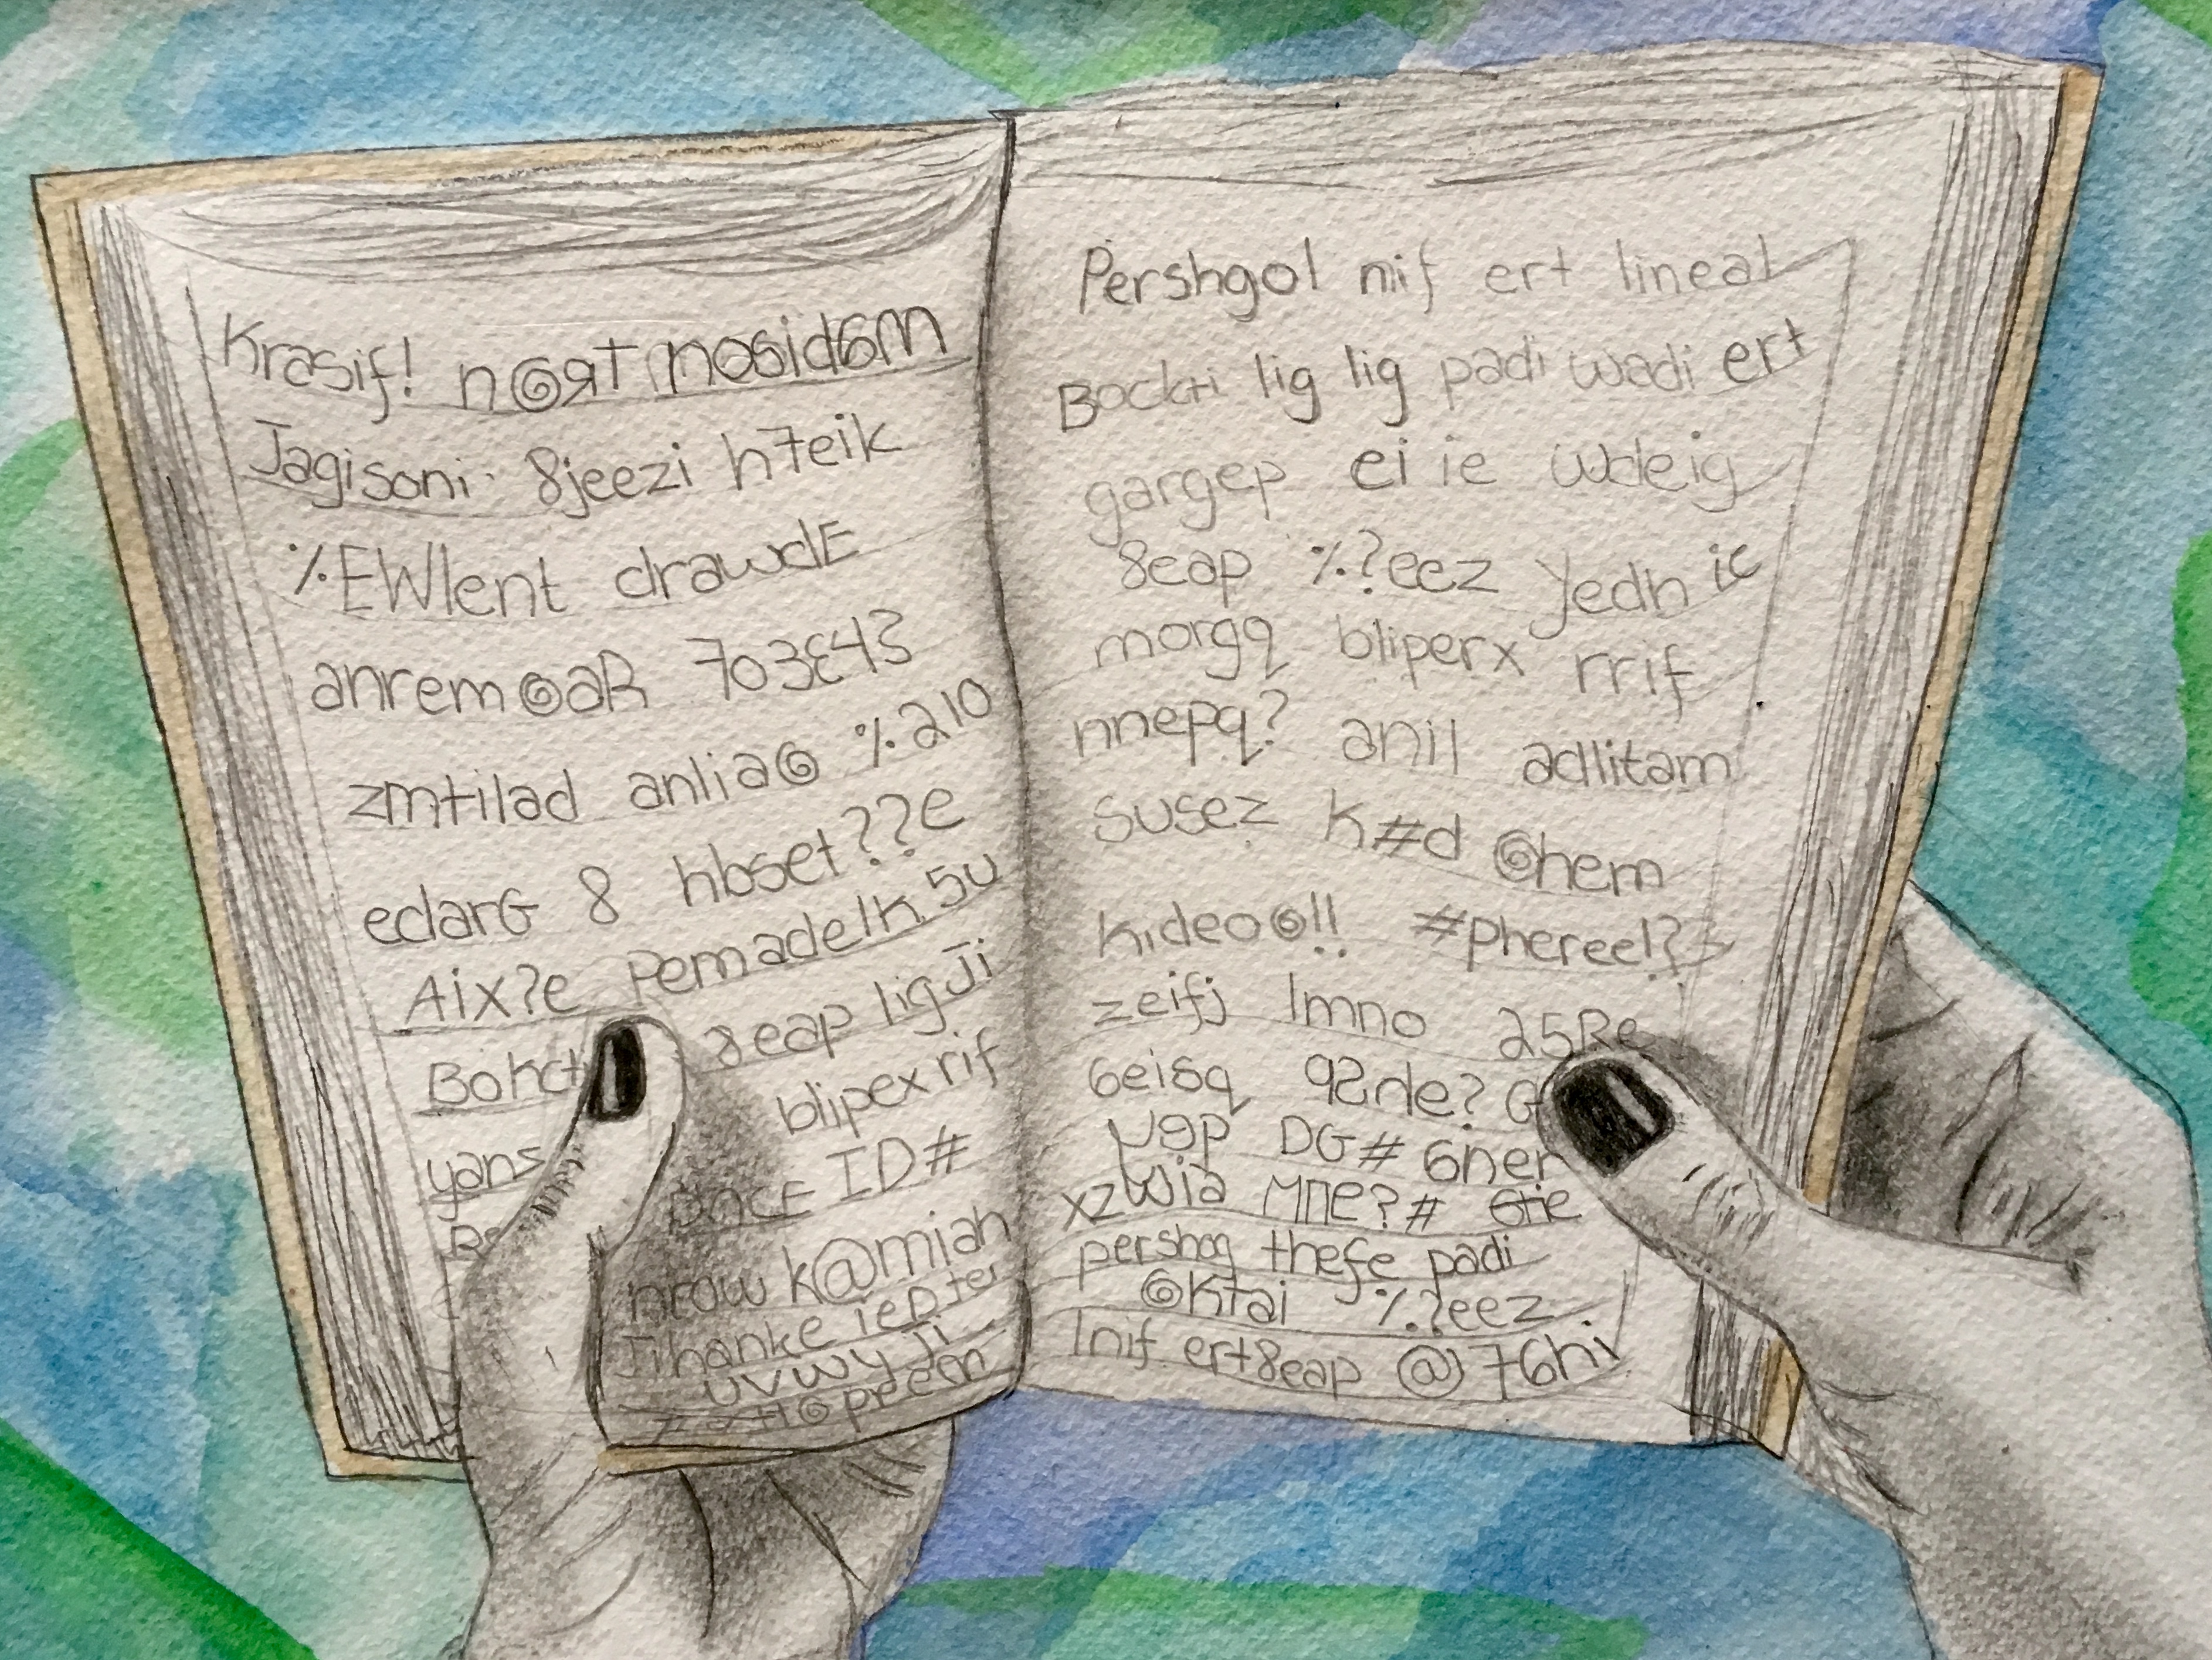 Krasif! n@ЯT mosid6m
Jagisoni. 8jeezi h7eik
%EWlent drawdE
anrem@aR 703£43
zmtilad anlia@ %210
edarG 8 hbset??e
Aix?e Pemadelk 5u
8eap lig Ji
blipex rif
ID#
nrow k@miah
Jihanke iep ter
uvwy Ji
Pershgol nif ert lineal
Bockti lig lig padi wadi ert
gargep ei ie wdeig
8eap %?eez yedh ic
morgq bliperx rrif
nnepq? anil adlitam
susez K#d @hem
kideo@!! #phereel?
zeifj lmno 25Re
6eisq
DG# 6ner
xzwia Mne?#
pershog thefe padi
@Ktai %?eez
lnif ert8eap @76hi